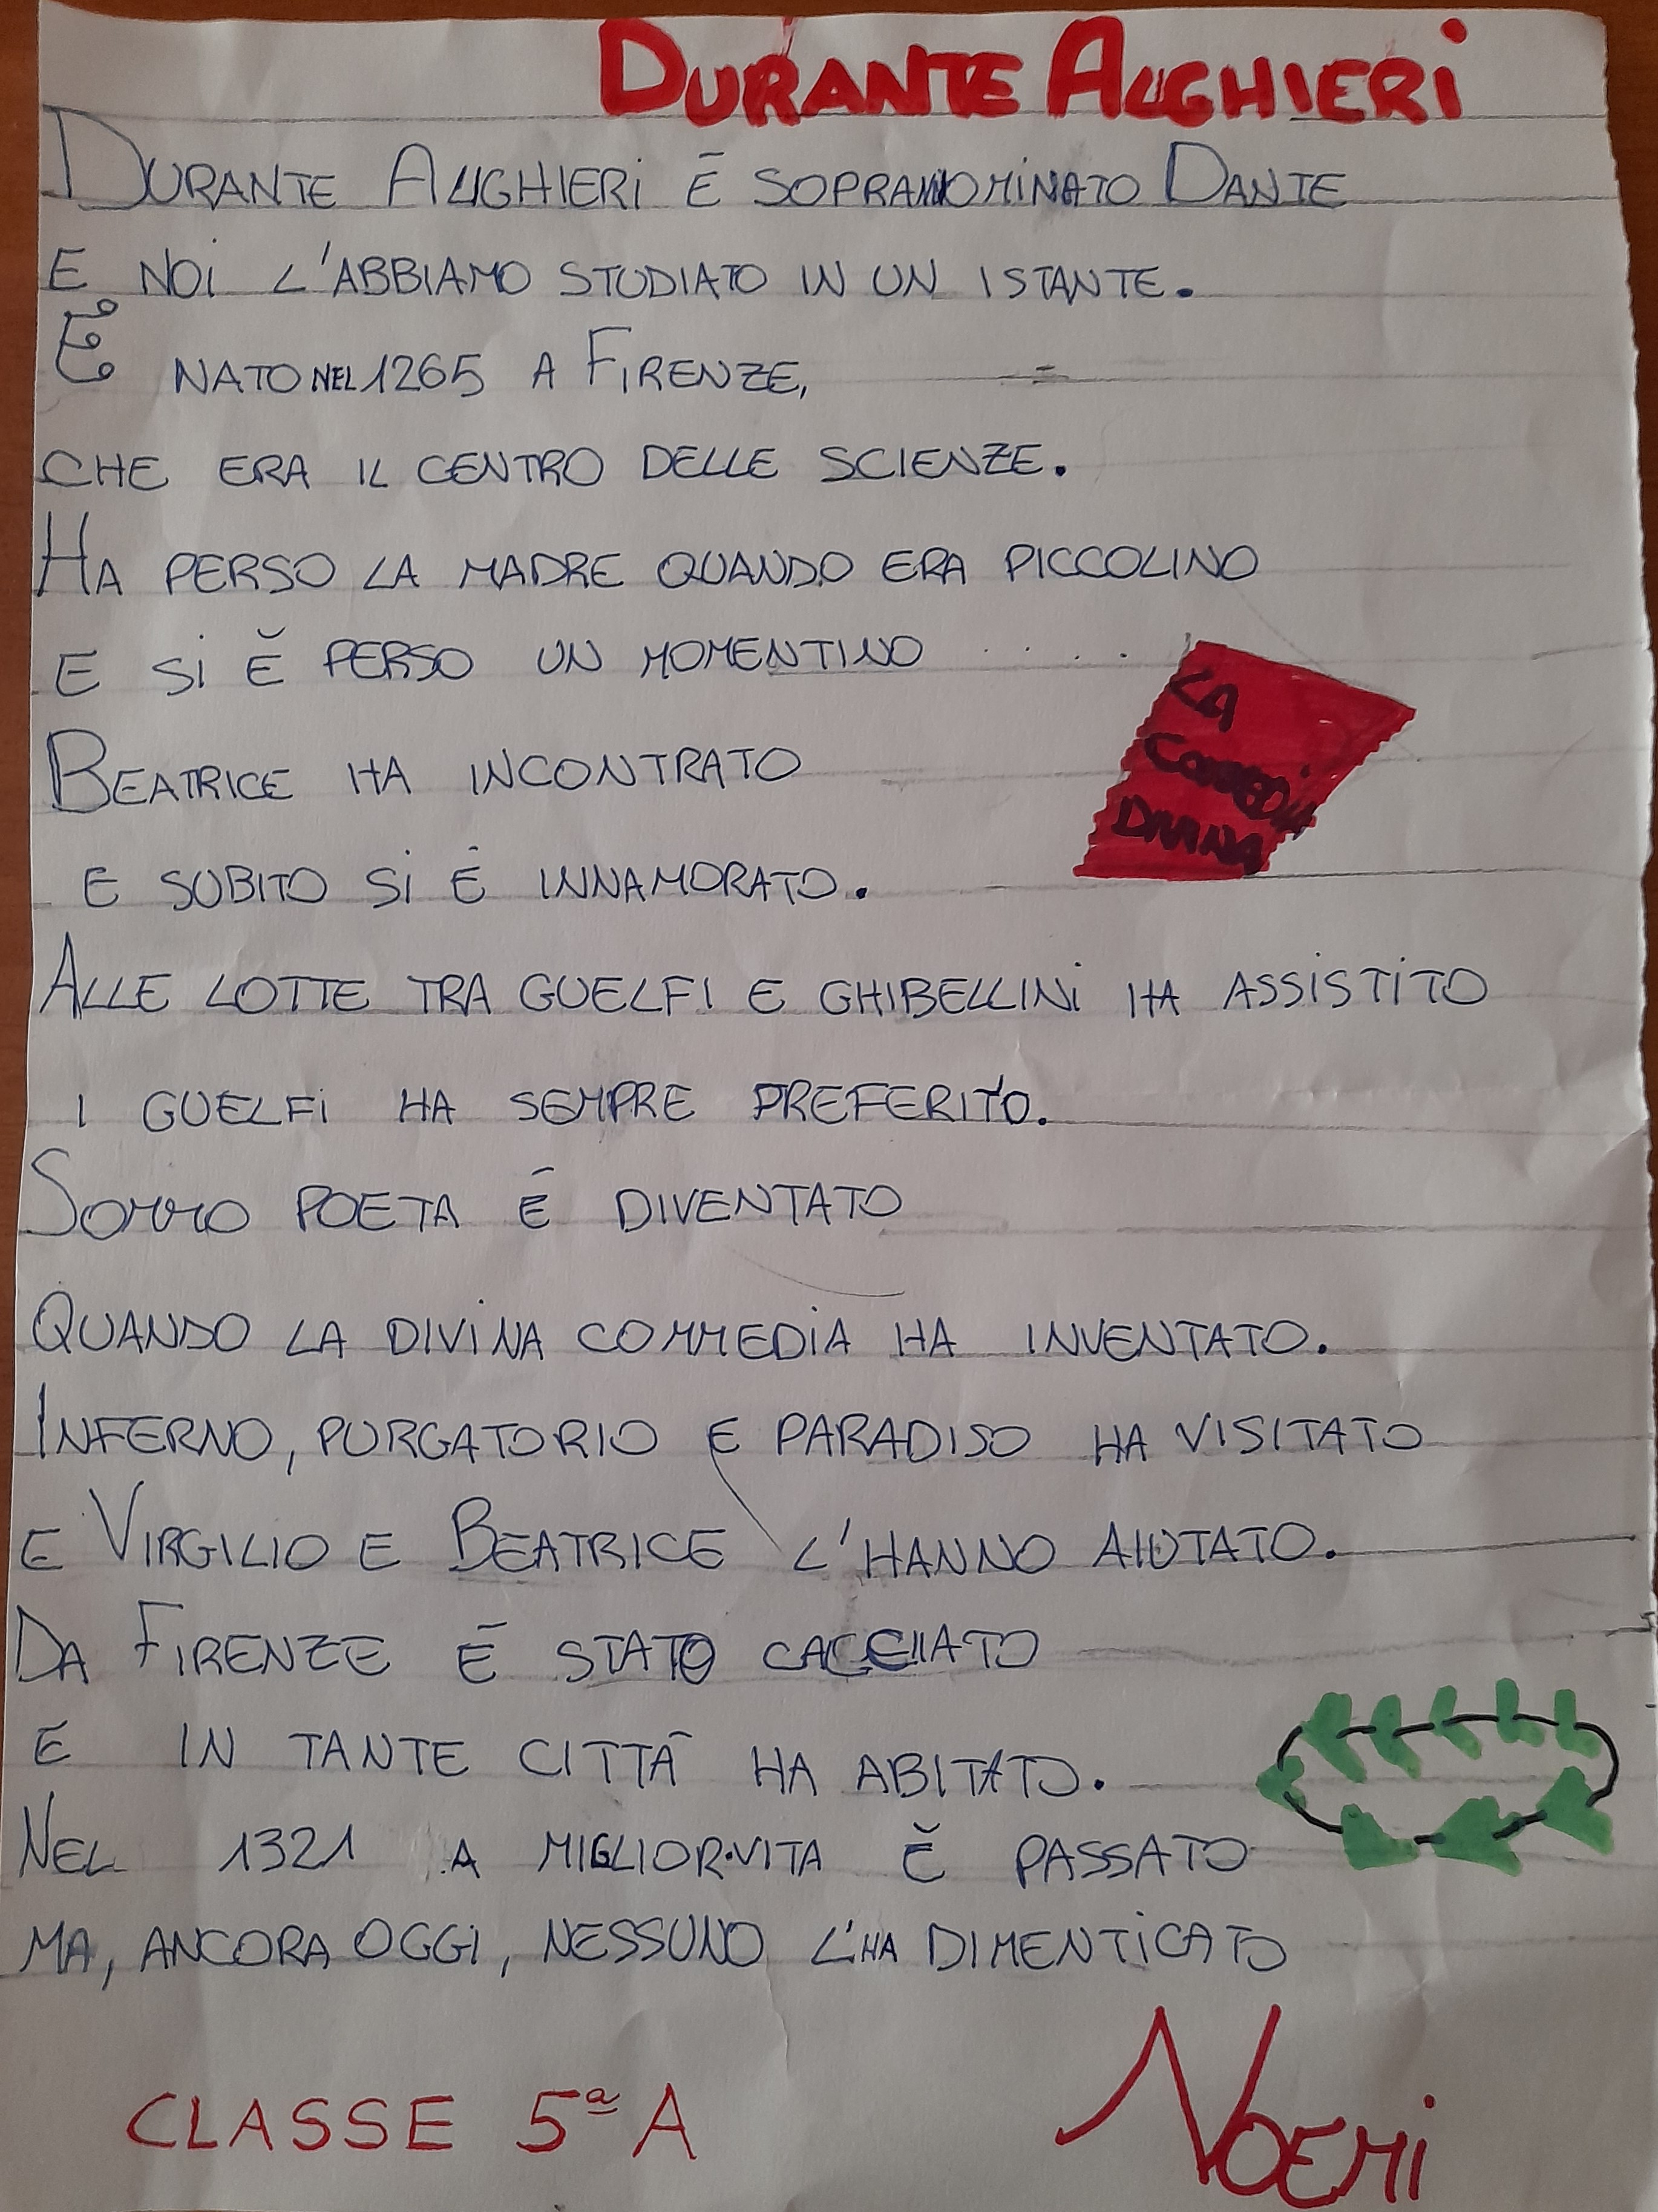 DURANTE ALIGHIERI
DURANTE ALIGHIERI È SOPRANNOMINATO DANTE
E NOI L'ABBIAMO STUDIATO IN UN ISTANTE.
È NATO NEL 1265 A FIRENZE,
CHE ERA IL CENTRO DELLE SCIENZE.
HA PERSO LA MADRE QUANDO ERA PICCOLINO
E SI È PERSO UN MOMENTINO
LA
COMMEDIA
DIVINA
BEATRICE HA INCONTRATO
E SUBITO SI È INNAMORATO.
ALLE LOTTE TRA GUELFI E GHIBELLINI HA ASSISTITO
I GUELFI HA SEMPRE PREFERITO.
SOMMO POETA È DIVENTATO
QUANDO LA DIVINA COMMEDIA HA INVENTATO.
INFERNO, PURGATORIO E PARADISO HA VISITATO
E VIRGILIO E BEATRICE L'HANNO AIUTATO.
DA FIRENZE È STATO CACCIATO
E IN TANTE CITTÀ HA ABITATO.
NEL 1321 A MIGLIOR VITA È PASSATO
MA, ANCORA OGGI, NESSUNO L'HA DIMENTICATO
CLASSE 5ª A
NOEMI